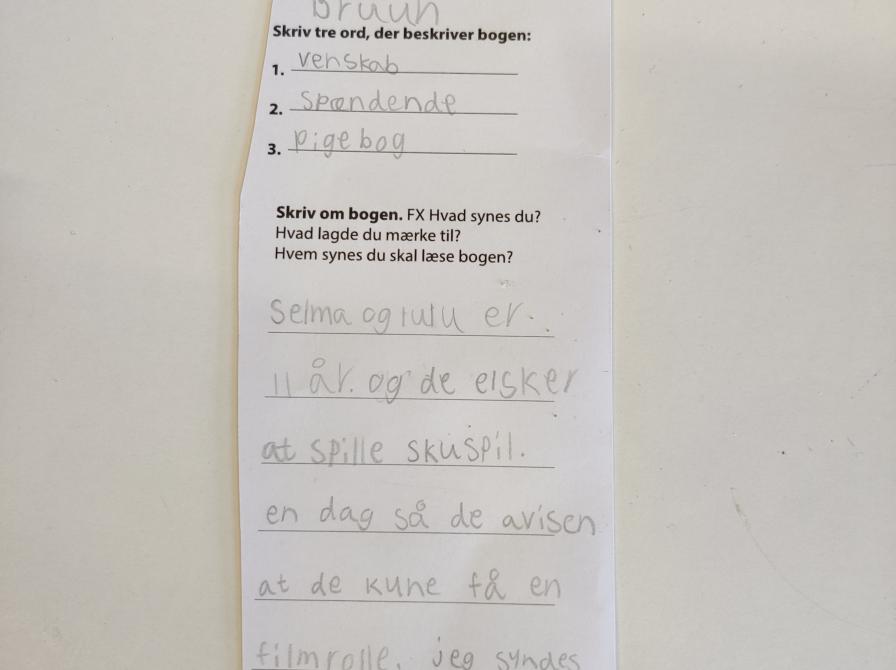 Bruun
Skriv tre ord, der beskriver bogen:
1. venskab
2. spændende
3. pigebog
Skriv om bogen. FX Hvad synes du?
Hvad lagde du mærke til?
Hvem synes du skal læse bogen?
Selma og lulu er.
11 år. og de elsker
at spille skuspil.
en dag så de avisen
at de kune få en
filmrolle. jeg syndes